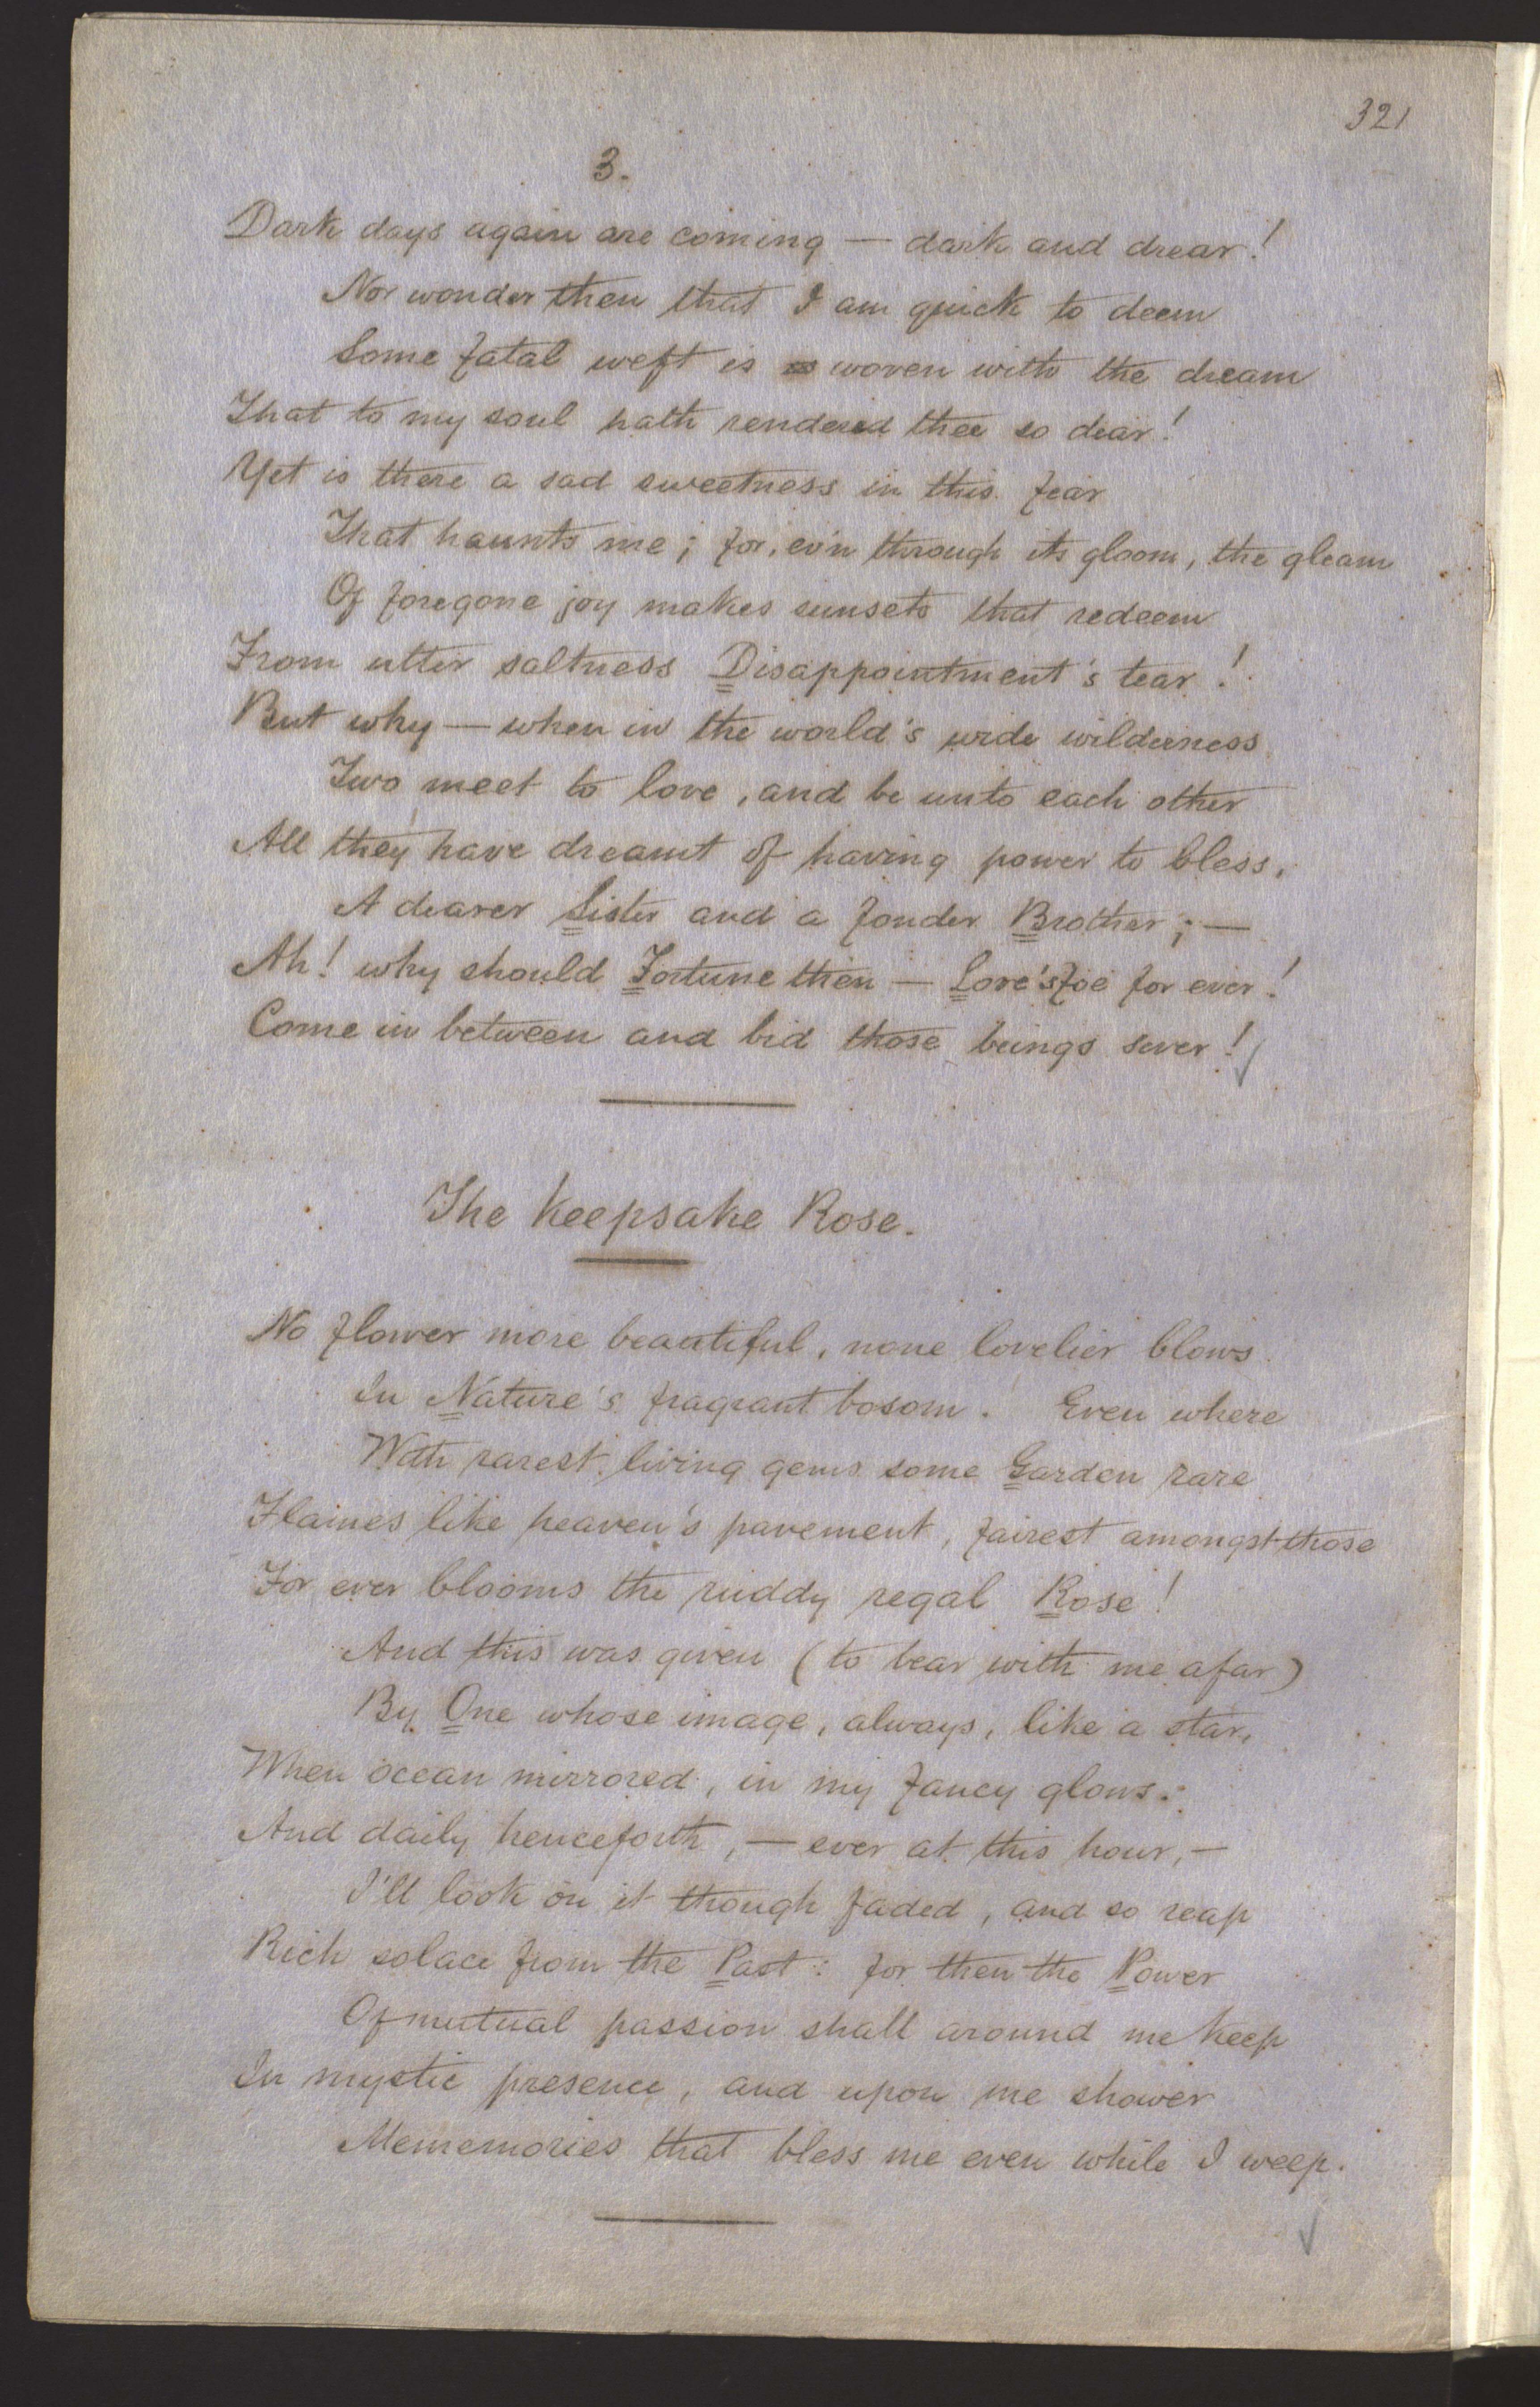 321
3.
Dark days again are coming — dark and drear!
Nor wonder then that I am quick to deem
Some fatal weft is woven with the dream
That to my soul hath rendered thee so dear!
Yet is there a sad sweetness in this fear
That haunts me; for, ev'n through its gloom, the gleam
Of foregone joy makes sunsets that redeem
From utter saltness Disappointment's tear!
But why — when in the world's wide wilderness
Two meet to love, and be unto each other
All they have dreamt of having power to bless,
A dearer Sister and a fonder Brother; —
Ah! why should Fortune then — Love's foe for ever!
Come in between and bid those beings sever!
The Keepsake Rose.
No flower more beautiful, none lovelier blows
In Nature's fragrant bosom. Even where
With rarest living gems some Garden rare
Flames like heaven's pavement, fairest amongst those
For ever blooms the ruddy regal Rose!
And this was given (to bear with me afar)
By One whose image, always, like a star,
When ocean mirrored, in my fancy glows:
And daily henceforth, — ever at this hour, —
I'll look on it though faded, and so reap
Rich solace from the Past: for then the Power
Of mutual passion shall around me keep
In mystic presence, and upon me shower
Mememories that bless me even while I weep.